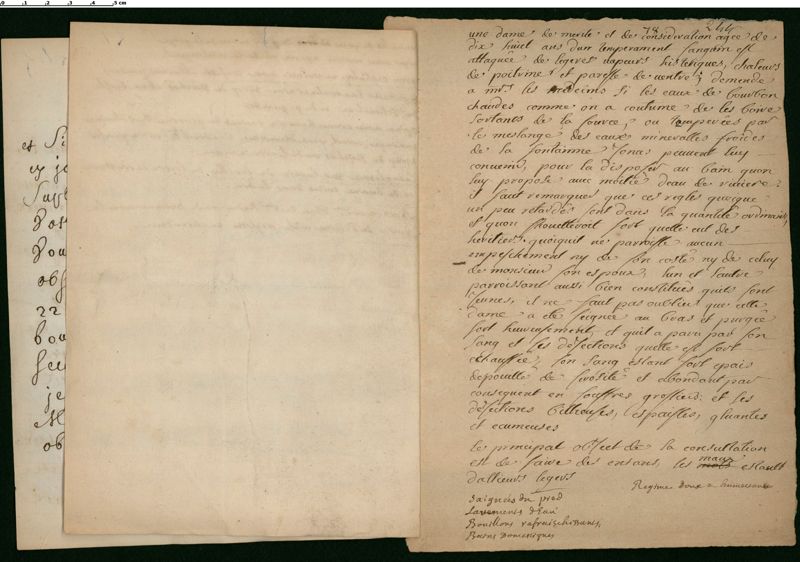 et Si
ey je
Supp
Dou
obs
22
bou
je
ob
78 244
une dame de merite et de consideration agee de
dix huict ans dun temperament sanguin est
attaquée de legeres vapeurs histeriques, chaleurs
de poitrine et paresse de ventre; demende
a mrs les medecins si les eaux de bourbon
chaudes comme on a coutume de les boire
sortants de la source, ou temperées par
le meslange des eaux mineralles froides
de la fontainne Jonas peuvent luy
convenir, pour la disposer au bain quon
luy propose avec moitié deau de riviere:
il faut remarquer que ces regles quoyque
un peu retardés sont dans la quantité ordinaire,
et quon souhetteroit fort quelle eut des
heritiers quoiquil ne paroisse aucun
empeschement ny de son costé ny de celuy
de monsieur son espoux, lun et lautre
paroissant aussi bien constitués quils sont
jeunes, il ne faut pas oublier que cette
dame a eté seignée au bras et purgée
fort heureusement, et quil a paru par son
sang et ses dejections quelle est fort
echauffée, son sang estant fort epais
depouillé de serosité et abondant par
consequent en souffres grossiers: et ses
dejections billieuses, espaisses, gluantes
et ecumeuses
le principal object de la consultation
est de faire des enfans, les maux estants
dallieurs legers
Regime doux & humectant
Saignées du pied
Lavements d'Eau
Bouillons rafraischissants,
Bains Domestiques